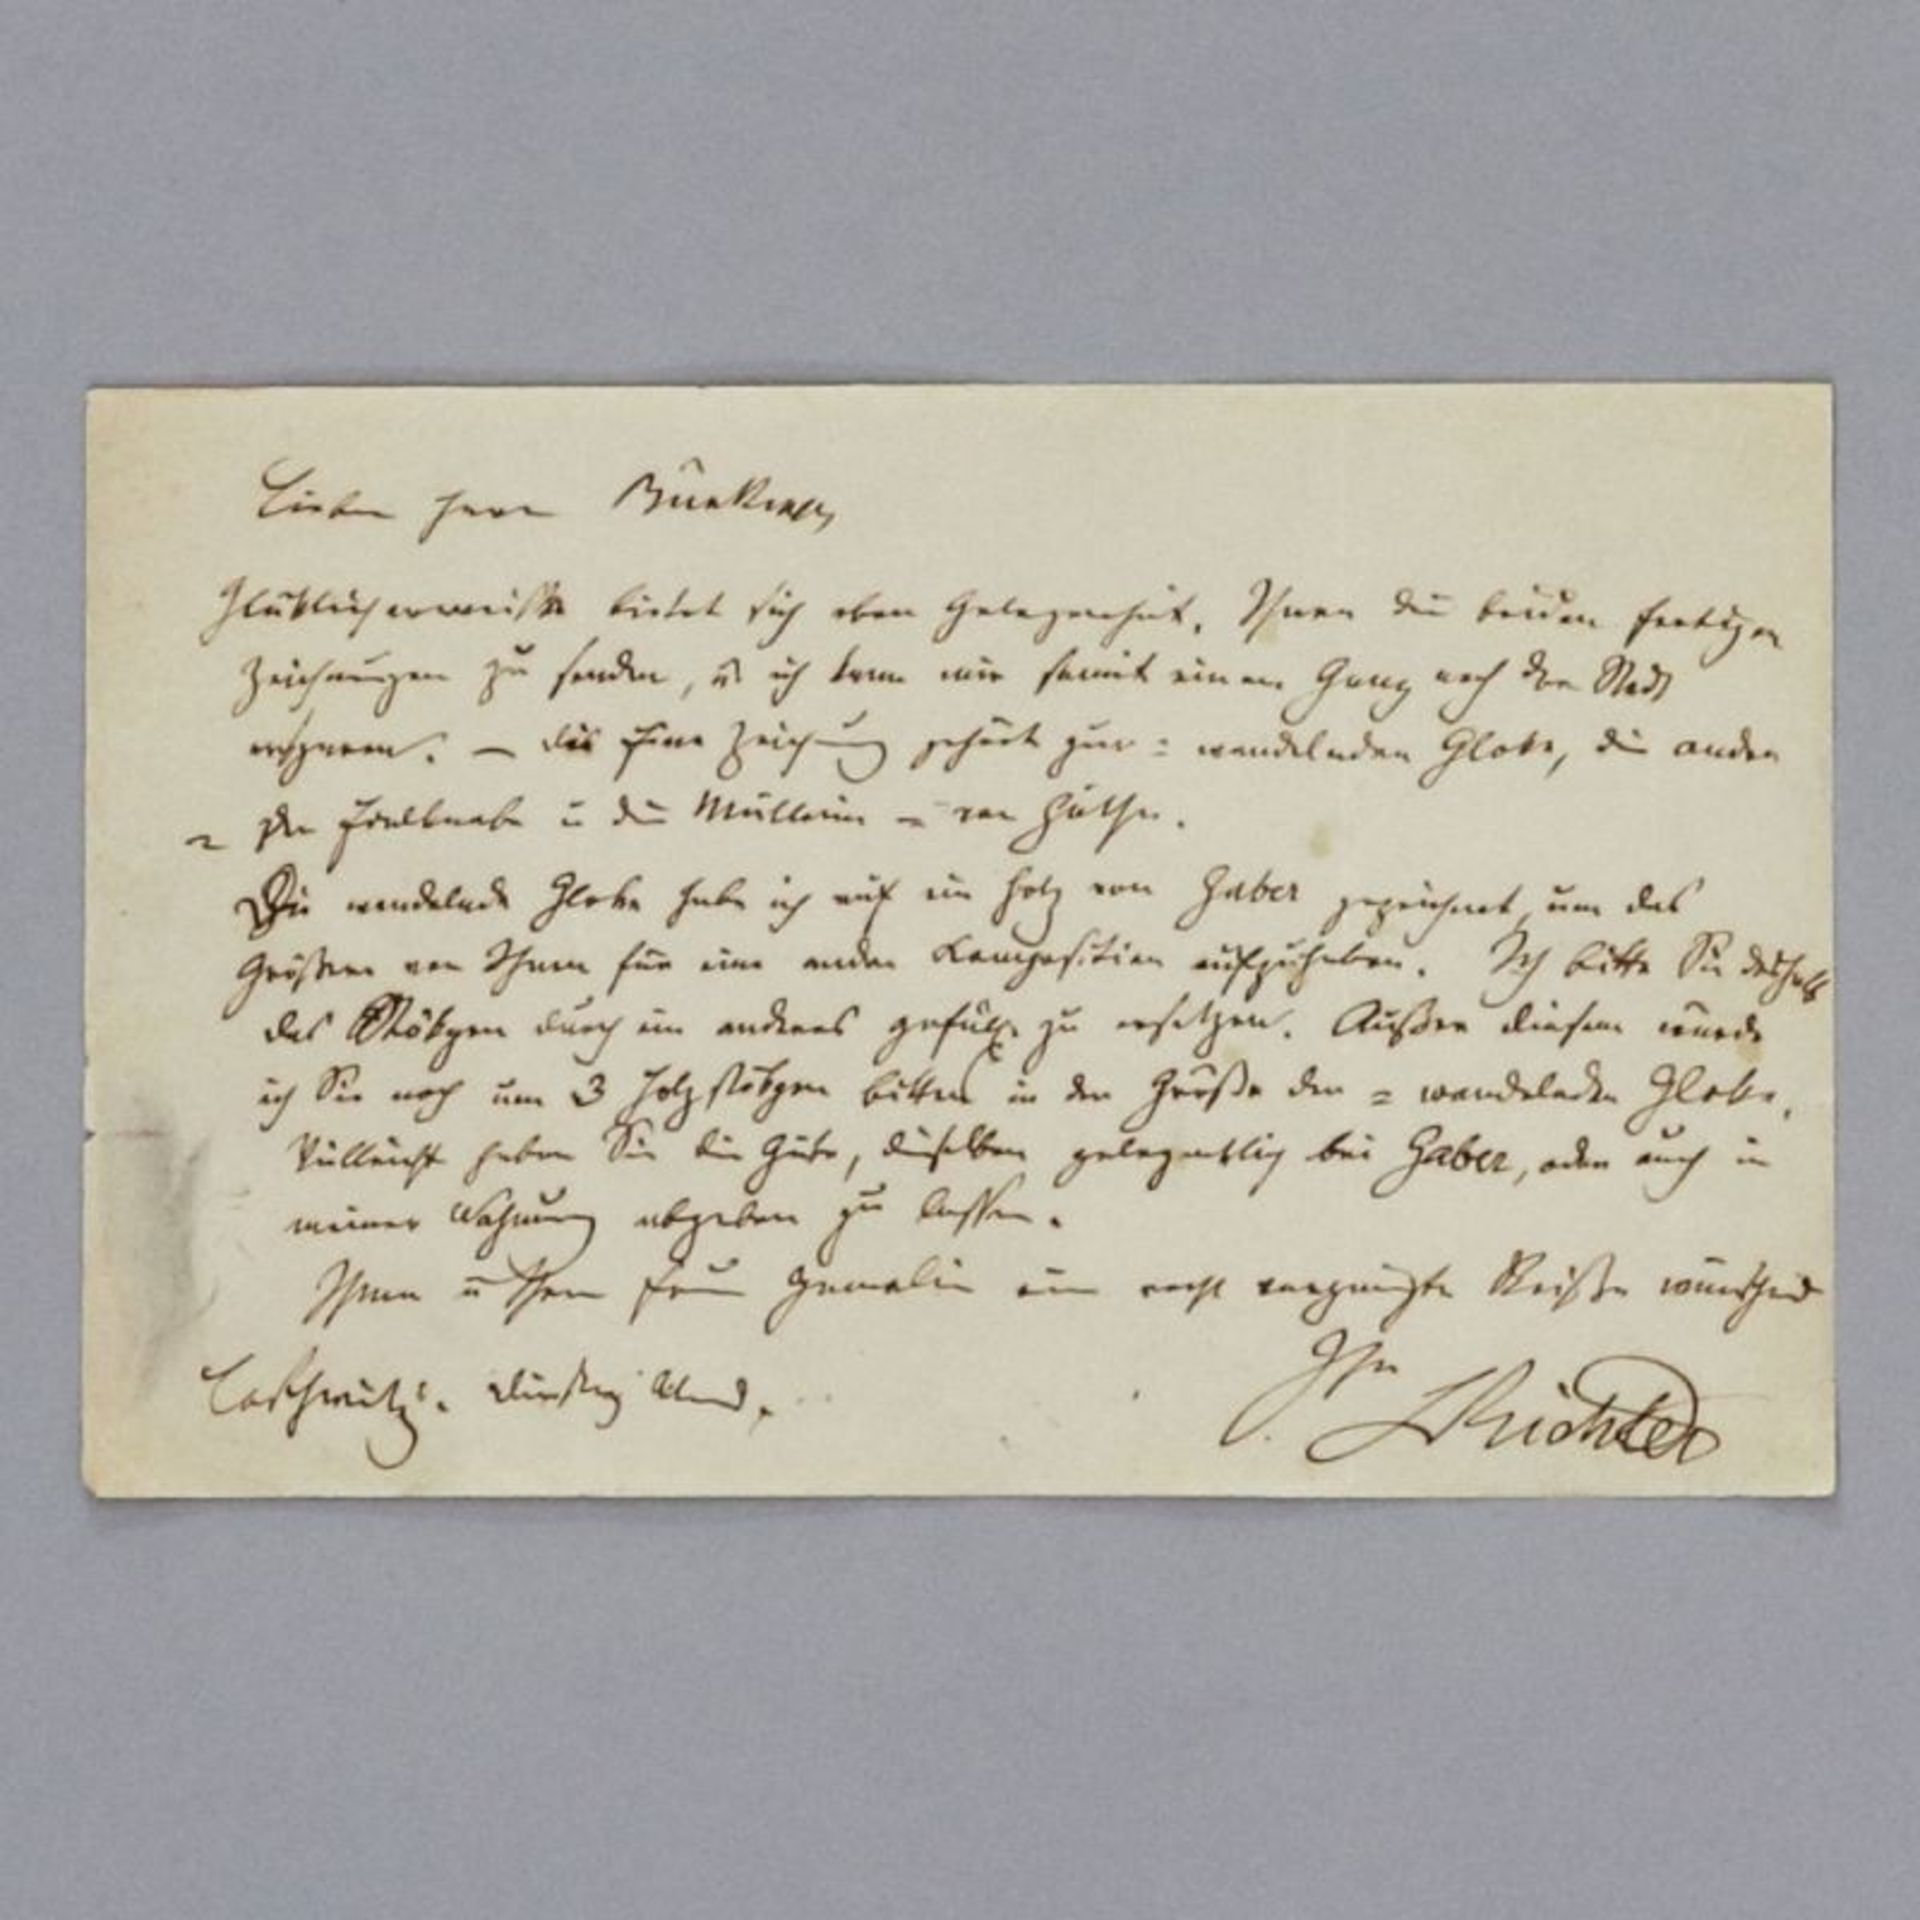 Lieber Herr Bürkner,
Glüklicherweisse bietet sich eben Gelegenheit, Ihnen die beiden fertigen
Zeichnungen zu senden, u. ich kann mir somit einen Gang nach der Stadt
ersparen. — Die Eine Zeichnung gehört zur = wandelnden Gloke, die andre
= der Edelknabe u die Müllerin = von Göthe.
Die wandelnde Gloke habe ich auf ein Holz von Gaber gezeichnet, um das
Größere von Ihnen für eine andre Komposition aufzuheben. Ich bitte Sie deshalb
das Stökgen durch ein anderes gefäll. zu ersetzen. Außer diesem würde
ich Sie noch um 3 Holzstökgen bitten in der Größe der = wandelnden Gloke.
Vielleicht haben Sie die Güte, dieselben gelegentlich bei Gaber, oder auch in
meiner Wohnung abgeben zu lassen.
Ihnen u Ihrer Frau Gemalin eine recht vergnügte Reisse wünschend
Ihr
Loschwitz. Dienstag Abend.
LRichter